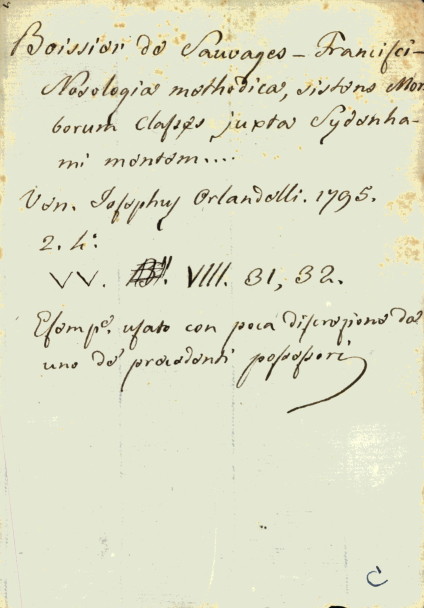 Boissier de Sauvages - Francisci -
Nosologia methodica, sistens Mor
borum Classes juxta Sydenha-
mi mentem....
Ven. Josephus Orlandelli. 1795.
2. 4:
VV. VIII. 31, 32.
Esemp.e usato con poca discrezione da
uno de' precedenti possessori
C